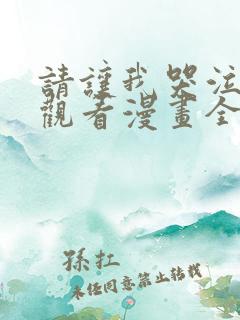 請讓我哭泣
觀看漫畫全
孫扛
未經同意禁止轉載